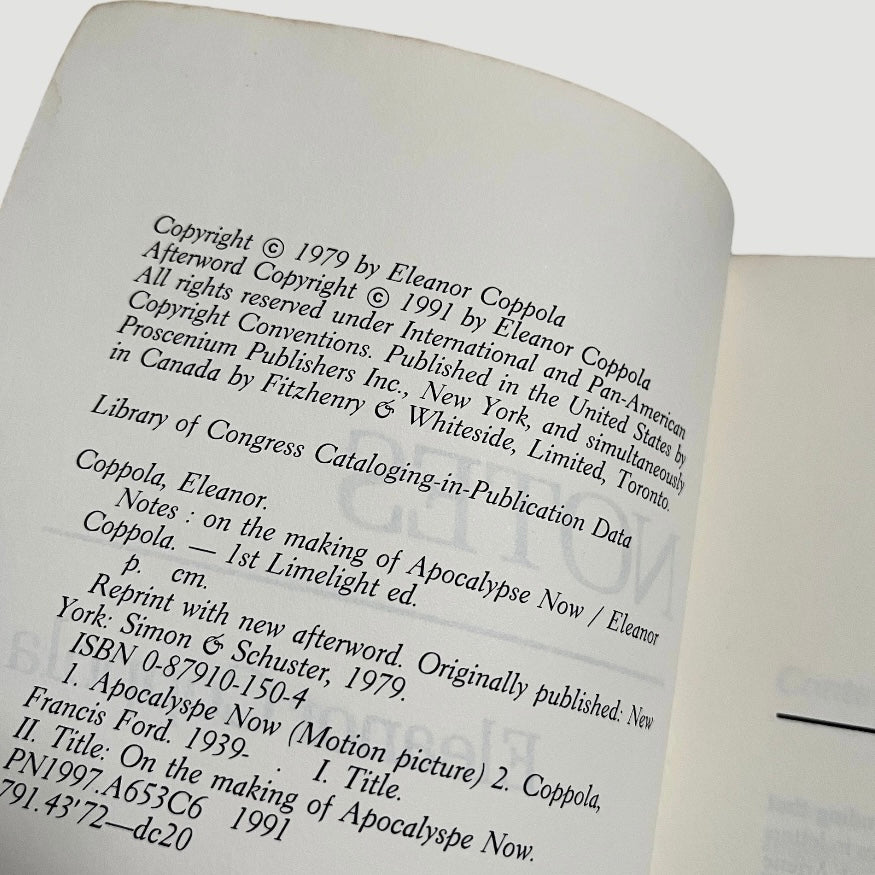 Copyright © 1979 by Eleanor Coppola
Afterword Copyright © 1991 by Eleanor Coppola
All rights reserved under International and Pan-American
Copyright Conventions. Published in the United States by
Proscenium Publishers Inc., New York, and simultaneously
in Canada by Fitzhenry & Whiteside, Limited, Toronto.
Library of Congress Cataloging-in-Publication Data
Coppola, Eleanor.
Notes : on the making of Apocalypse Now / Eleanor
Coppola. — 1st Limelight ed.
p. cm.
Reprint with new afterword. Originally published: New
York: Simon & Schuster, 1979.
ISBN 0-87910-150-4
1. Apocalyspe Now (Motion picture) 2. Coppola,
Francis Ford. 1939- . I. Title.
II. Title: On the making of Apocalyspe Now.
PN1997.A653C6 1991
791.43'72—dc20
NOTES